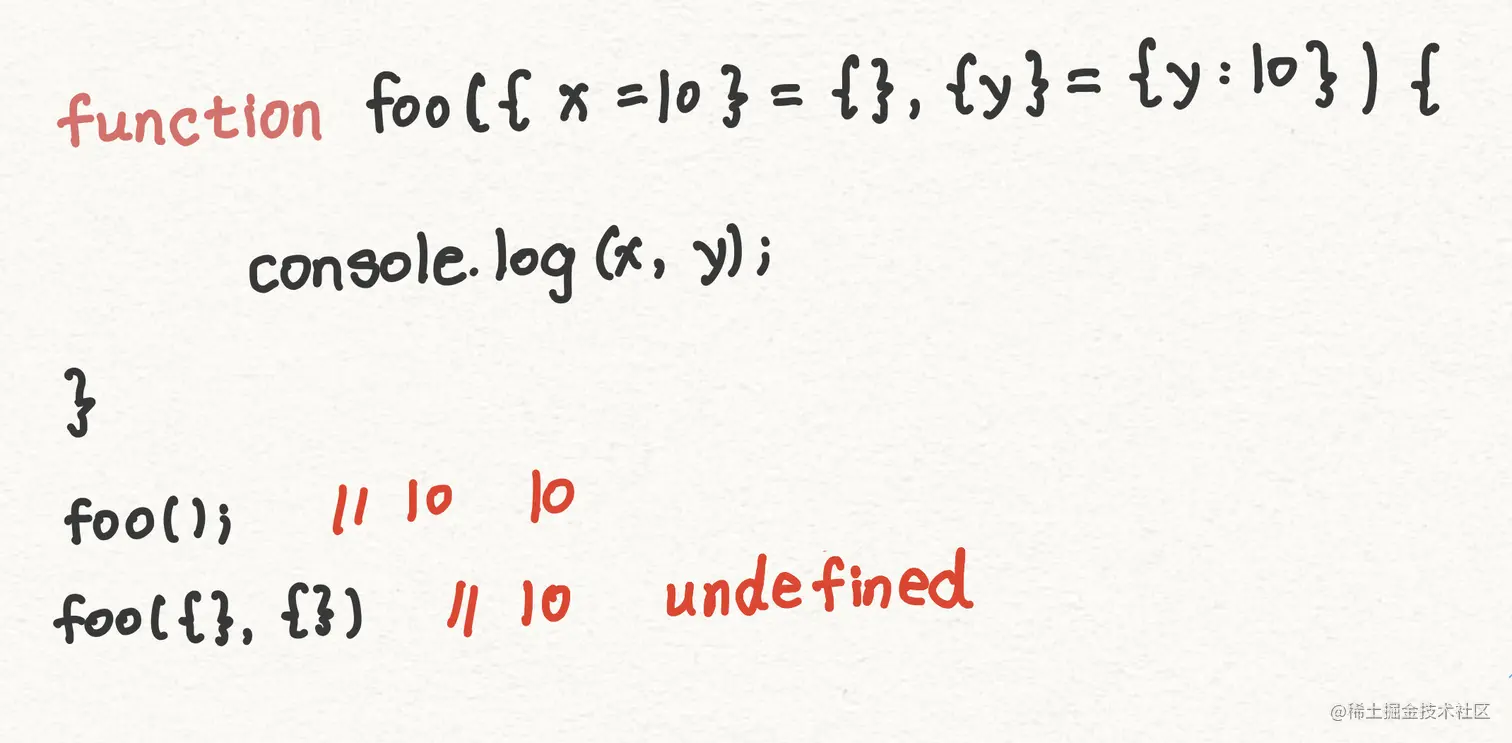 function foo({ x =10 } = {}, {y} = {y:10}) {
console.log(x, y);
}
foo(); // 10 10
foo({}, {}) // 10 undefined
@稀土掘金技术社区